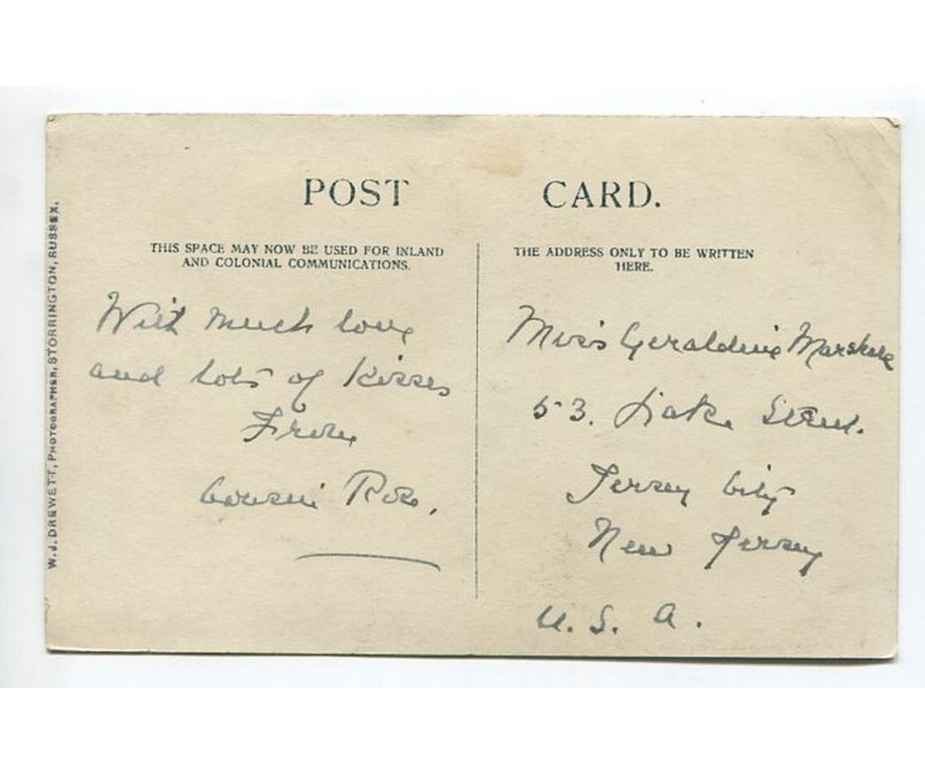 POST CARD.
W. J. DREWETT, PHOTOGRAPHER, STORRINGTON, SUSSEX.
THIS SPACE MAY NOW BE USED FOR INLAND
AND COLONIAL COMMUNICATIONS.
With much love
and lots of kisses
From
Cousin Rose,
THE ADDRESS ONLY TO BE WRITTEN
HERE.
Miss Geraldine
53. Street.
Jersey City
New Jersey
U. S. A.